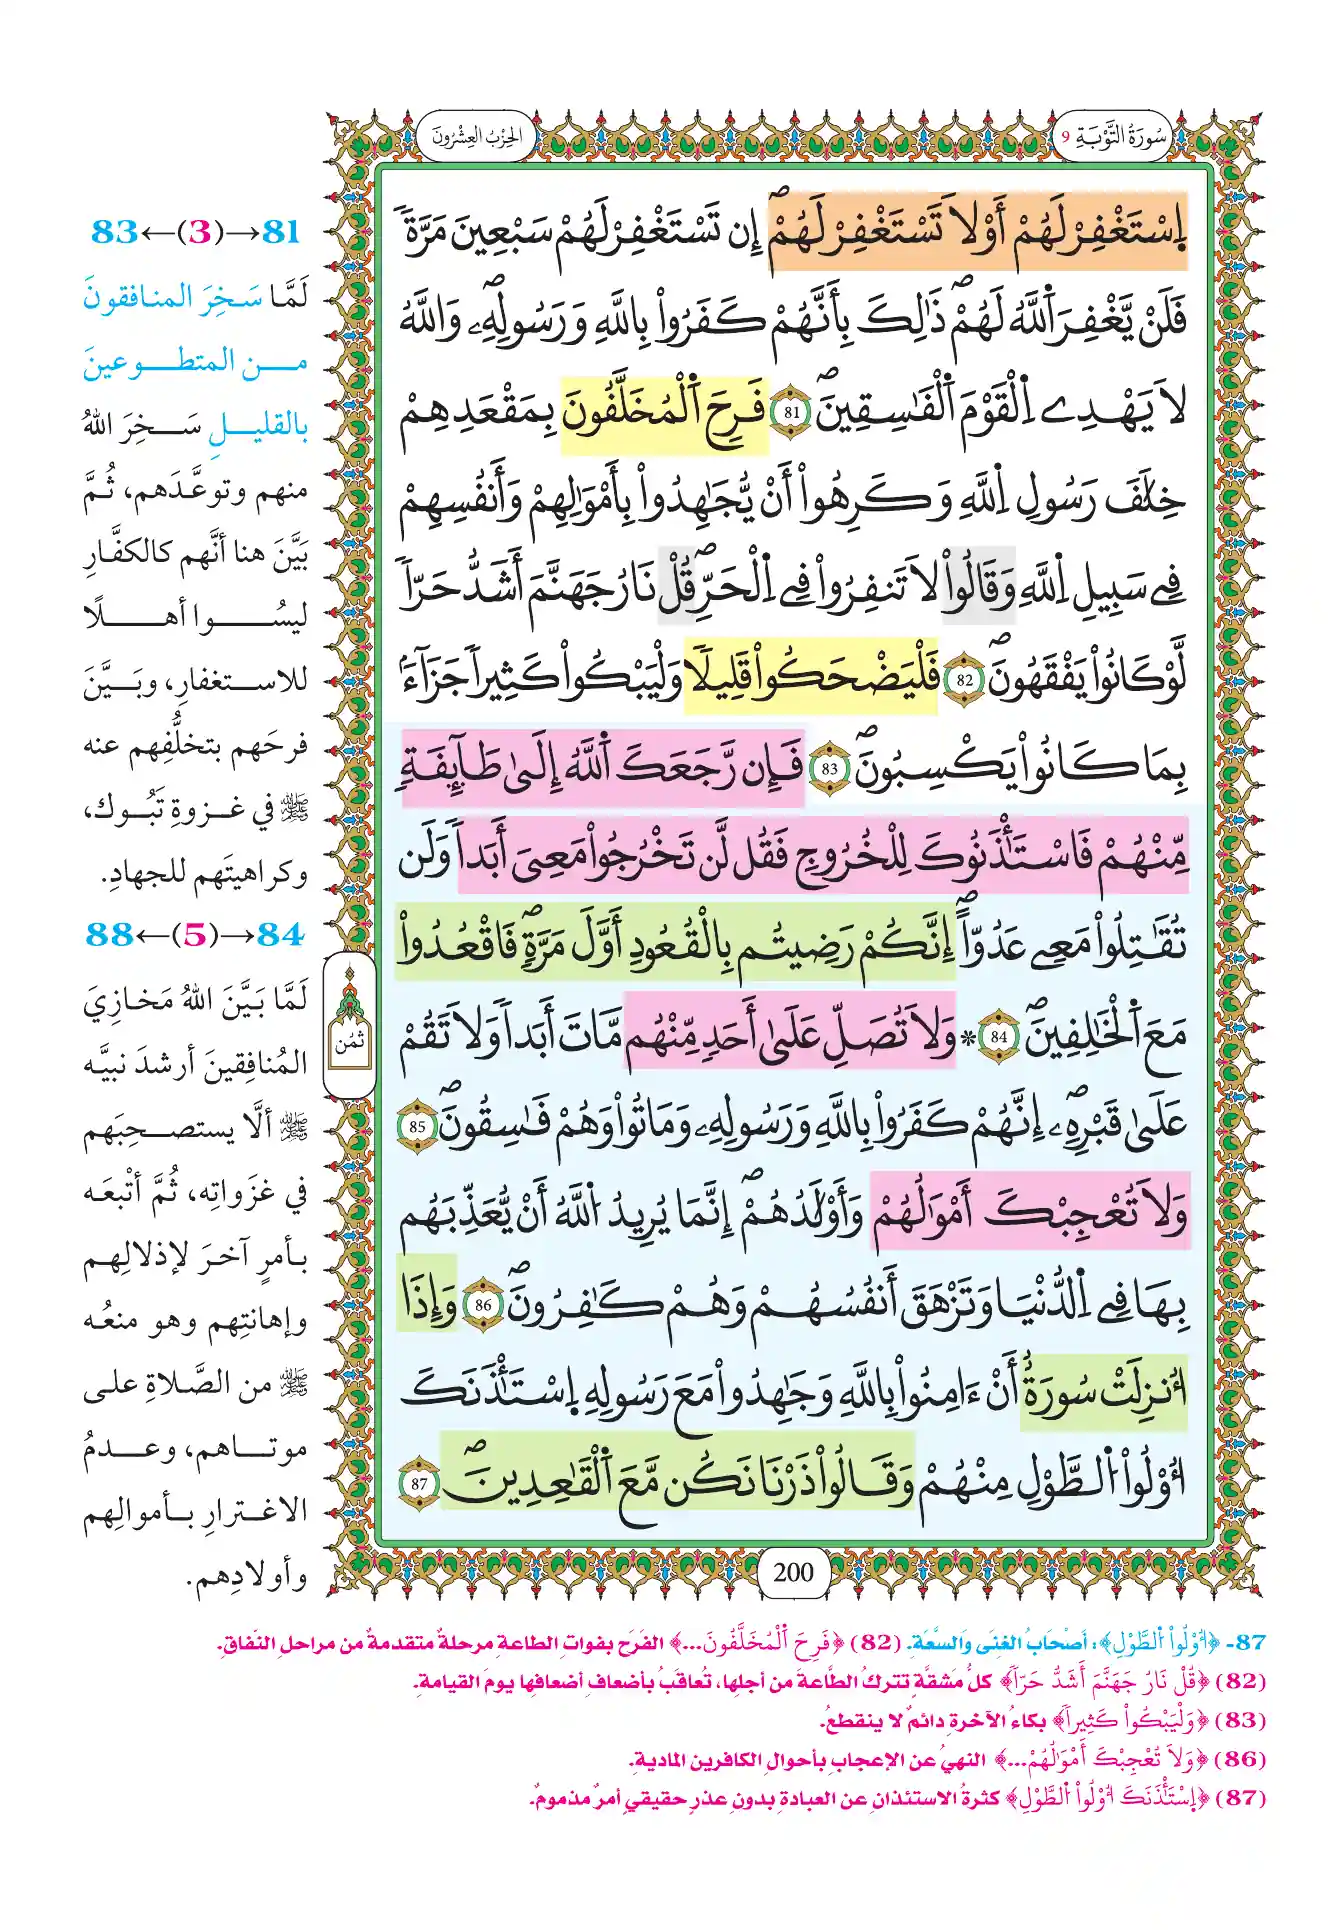 سُورَةُ التَّوْبَةِ 9
الحِزْبُ العِشْرُونَ
اِ۪سْتَغْفِرْ لَهُمْ أَوْ لَا تَسْتَغْفِرْ لَهُمْۖ إِن تَسْتَغْفِرْ لَهُمْ سَبْعِينَ مَرَّةٗ
فَلَنْ يَّغْفِرَ اَ۬للَّهُ لَهُمْۖ ذَٰلِكَ بِأَنَّهُمْ كَفَرُواْ بِاللَّهِ وَرَسُولِهِۦۖ وَاللَّهُ
لَا يَهْدِے اِ۬لْقَوْمَ اَ۬لْفَٰسِقِينَۖ 81 فَرِحَ اَ۬لْمُخَلَّفُونَ بِمَقْعَدِهِمْ
خِلَٰفَ رَسُولِ اِ۬للَّهِ وَكَرِهُواْ أَنْ يُّجَٰهِدُواْ بِأَمْوَٰلِهِمْ وَأَنفُسِهِمْ
فِے سَبِيلِ اِ۬للَّهِ وَقَالُواْ لَا تَنفِرُواْ فِے اِ۬لْحَرِّۖ قُلْ نَارُ جَهَنَّمَ أَشَدُّ حَرّاٗ
لَّوْ كَانُواْ يَفْقَهُونَۖ 82 فَلْيَضْحَكُواْ قَلِيلاٗ وَلْيَبْكُواْ كَثِيراٗ جَزَآءَۢ
بِمَا كَانُواْ يَكْسِبُونَۖ 83 فَإِن رَّجَعَكَ اَ۬للَّهُ إِلَىٰ طَآئِفَةٖ
مِّنْهُمْ فَاسْتَـْٔذَنُوكَ لِلْخُرُوجِ فَقُل لَّن تَخْرُجُواْ مَعِيَ أَبَداٗ وَلَن
تُقَٰتِلُواْ مَعِے عَدُوّاًۖ اِنَّكُمْ رَضِيتُم بِالْقُعُودِ أَوَّلَ مَرَّةٖۖ فَاقْعُدُواْ
مَعَ اَ۬لْخَٰلِفِينَۖ 84 ۞ وَلَا تُصَلِّ عَلَىٰ أَحَدٖ مِّنْهُم مَّاتَ أَبَداٗ وَلَا تَقُمْ
عَلَىٰ قَبْرِهِۦۖ إِنَّهُمْ كَفَرُواْ بِاللَّهِ وَرَسُولِهِۦ وَمَاتُواْ وَهُمْ فَٰسِقُونَۖ 85
وَلَا تُعْجِبْكَ أَمْوَٰلُهُمْ وَأَوْلَٰدُهُمْۖ إِنَّمَا يُرِيدُ اُ۬للَّهُ أَنْ يُّعَذِّبَهُم
بِهَا فِے اِ۬لدُّنْيَا وَتَزْهَقَ أَنفُسُهُمْ وَهُمْ كَٰفِرُونَۖ 86 وَإِذَا
أُنزِلَتْ سُورَةٌ أَنْ ءَامِنُواْ بِاللَّهِ وَجَٰهِدُواْ مَعَ رَسُولِهِ اِ۪سْتَـْٔذَنَكَ
أُوْلُواْ اُ۬لطَّوْلِ مِنْهُمْ وَقَالُواْ ذَرْنَا نَكُن مَّعَ اَ۬لْقَٰعِدِينَۖ 87
81→(3)←83
لَمَّا سَخِرَ المنافقونَ
من المتطوعينَ
بالقليلِ سَخِرَ اللهُ
منهم وتوعَّدَهم، ثُمَّ
بَيَّنَ هنا أنَّهم كالكفَّارِ
ليسُوا أهلًا
للاستغفارِ، وبَيَّنَ
فرحَهم بتخلُّفِهم عنه
ﷺ في غزوةِ تَبُوك،
وكراهيتَهم للجهادِ.
84→(5)←88
لَمَّا بَيَّنَ اللهُ مَخازِيَ
المُنافِقينَ أرشدَ نبيَّه
ﷺ ألَّا يستصحِبَهم
في غزَواتِه، ثُمَّ أتْبعَه
بأمرٍ آخرَ لإذلالِهم
وإهانتِهم وهو منعُه
ﷺ من الصَّلاةِ على
موتاهم، وعدمُ
الاغترارِ بأموالِهم
وأولادِهم.
ثُمُن
200
87- ﴿أُوْلُواْ اُ۬لطَّوْلِ﴾: أصْحَابُ الغِنَى وَالسَّعَةِ. (82) ﴿فَرِحَ اَ۬لْمُخَلَّفُونَ...﴾ الفَرَح بفواتِ الطاعةِ مرحلةٌ متقدمةٌ من مراحلِ النِّفاقِ.
(82) ﴿قُلْ نَارُ جَهَنَّمَ أَشَدُّ حَرّاٗ﴾ كلُّ مَشقَّةٍ تتركُ الطَّاعةَ من أجلِها، تُعاقَبُ بأضعافِ أضعافِها يومَ القيامةِ.
(83) ﴿وَلْيَبْكُواْ كَثِيراٗ﴾ بكاءُ الآخرةِ دائمٌ لا ينقطعُ.
(86) ﴿وَلَا تُعْجِبْكَ أَمْوَٰلُهُمْ...﴾ النهيُ عن الإعجابِ بأحوالِ الكافرين المادية.
(87) ﴿اِ۪سْتَـْٔذَنَكَ أُوْلُواْ اُ۬لطَّوْلِ﴾ كثرةُ الاستئذانِ عن العبادةِ بدونِ عذرٍ حقيقيٍ أمرٌ مذمومٌ.